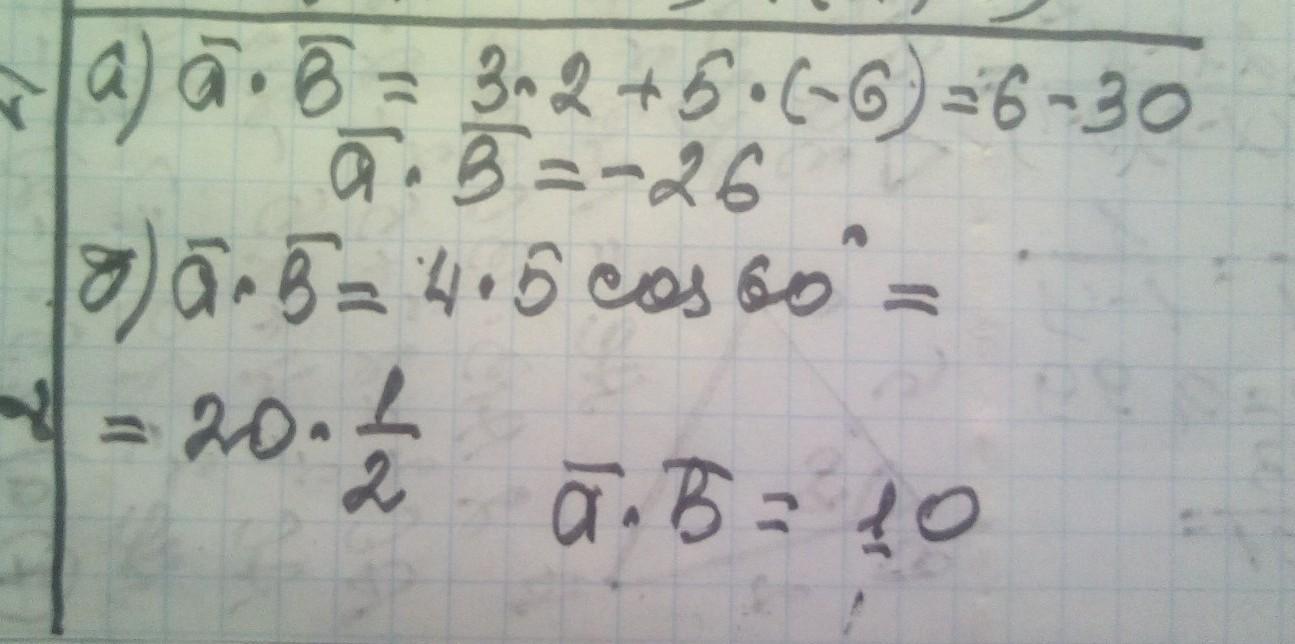 а) a̅ · b̅ = 3 · 2 + 5 · (-6) = 6 - 30
a̅ · b̅ = -26
б) a̅ · b̅ = 4 · 5 cos 60° =
= 20 · 1/2
a̅ · b̅ = 10